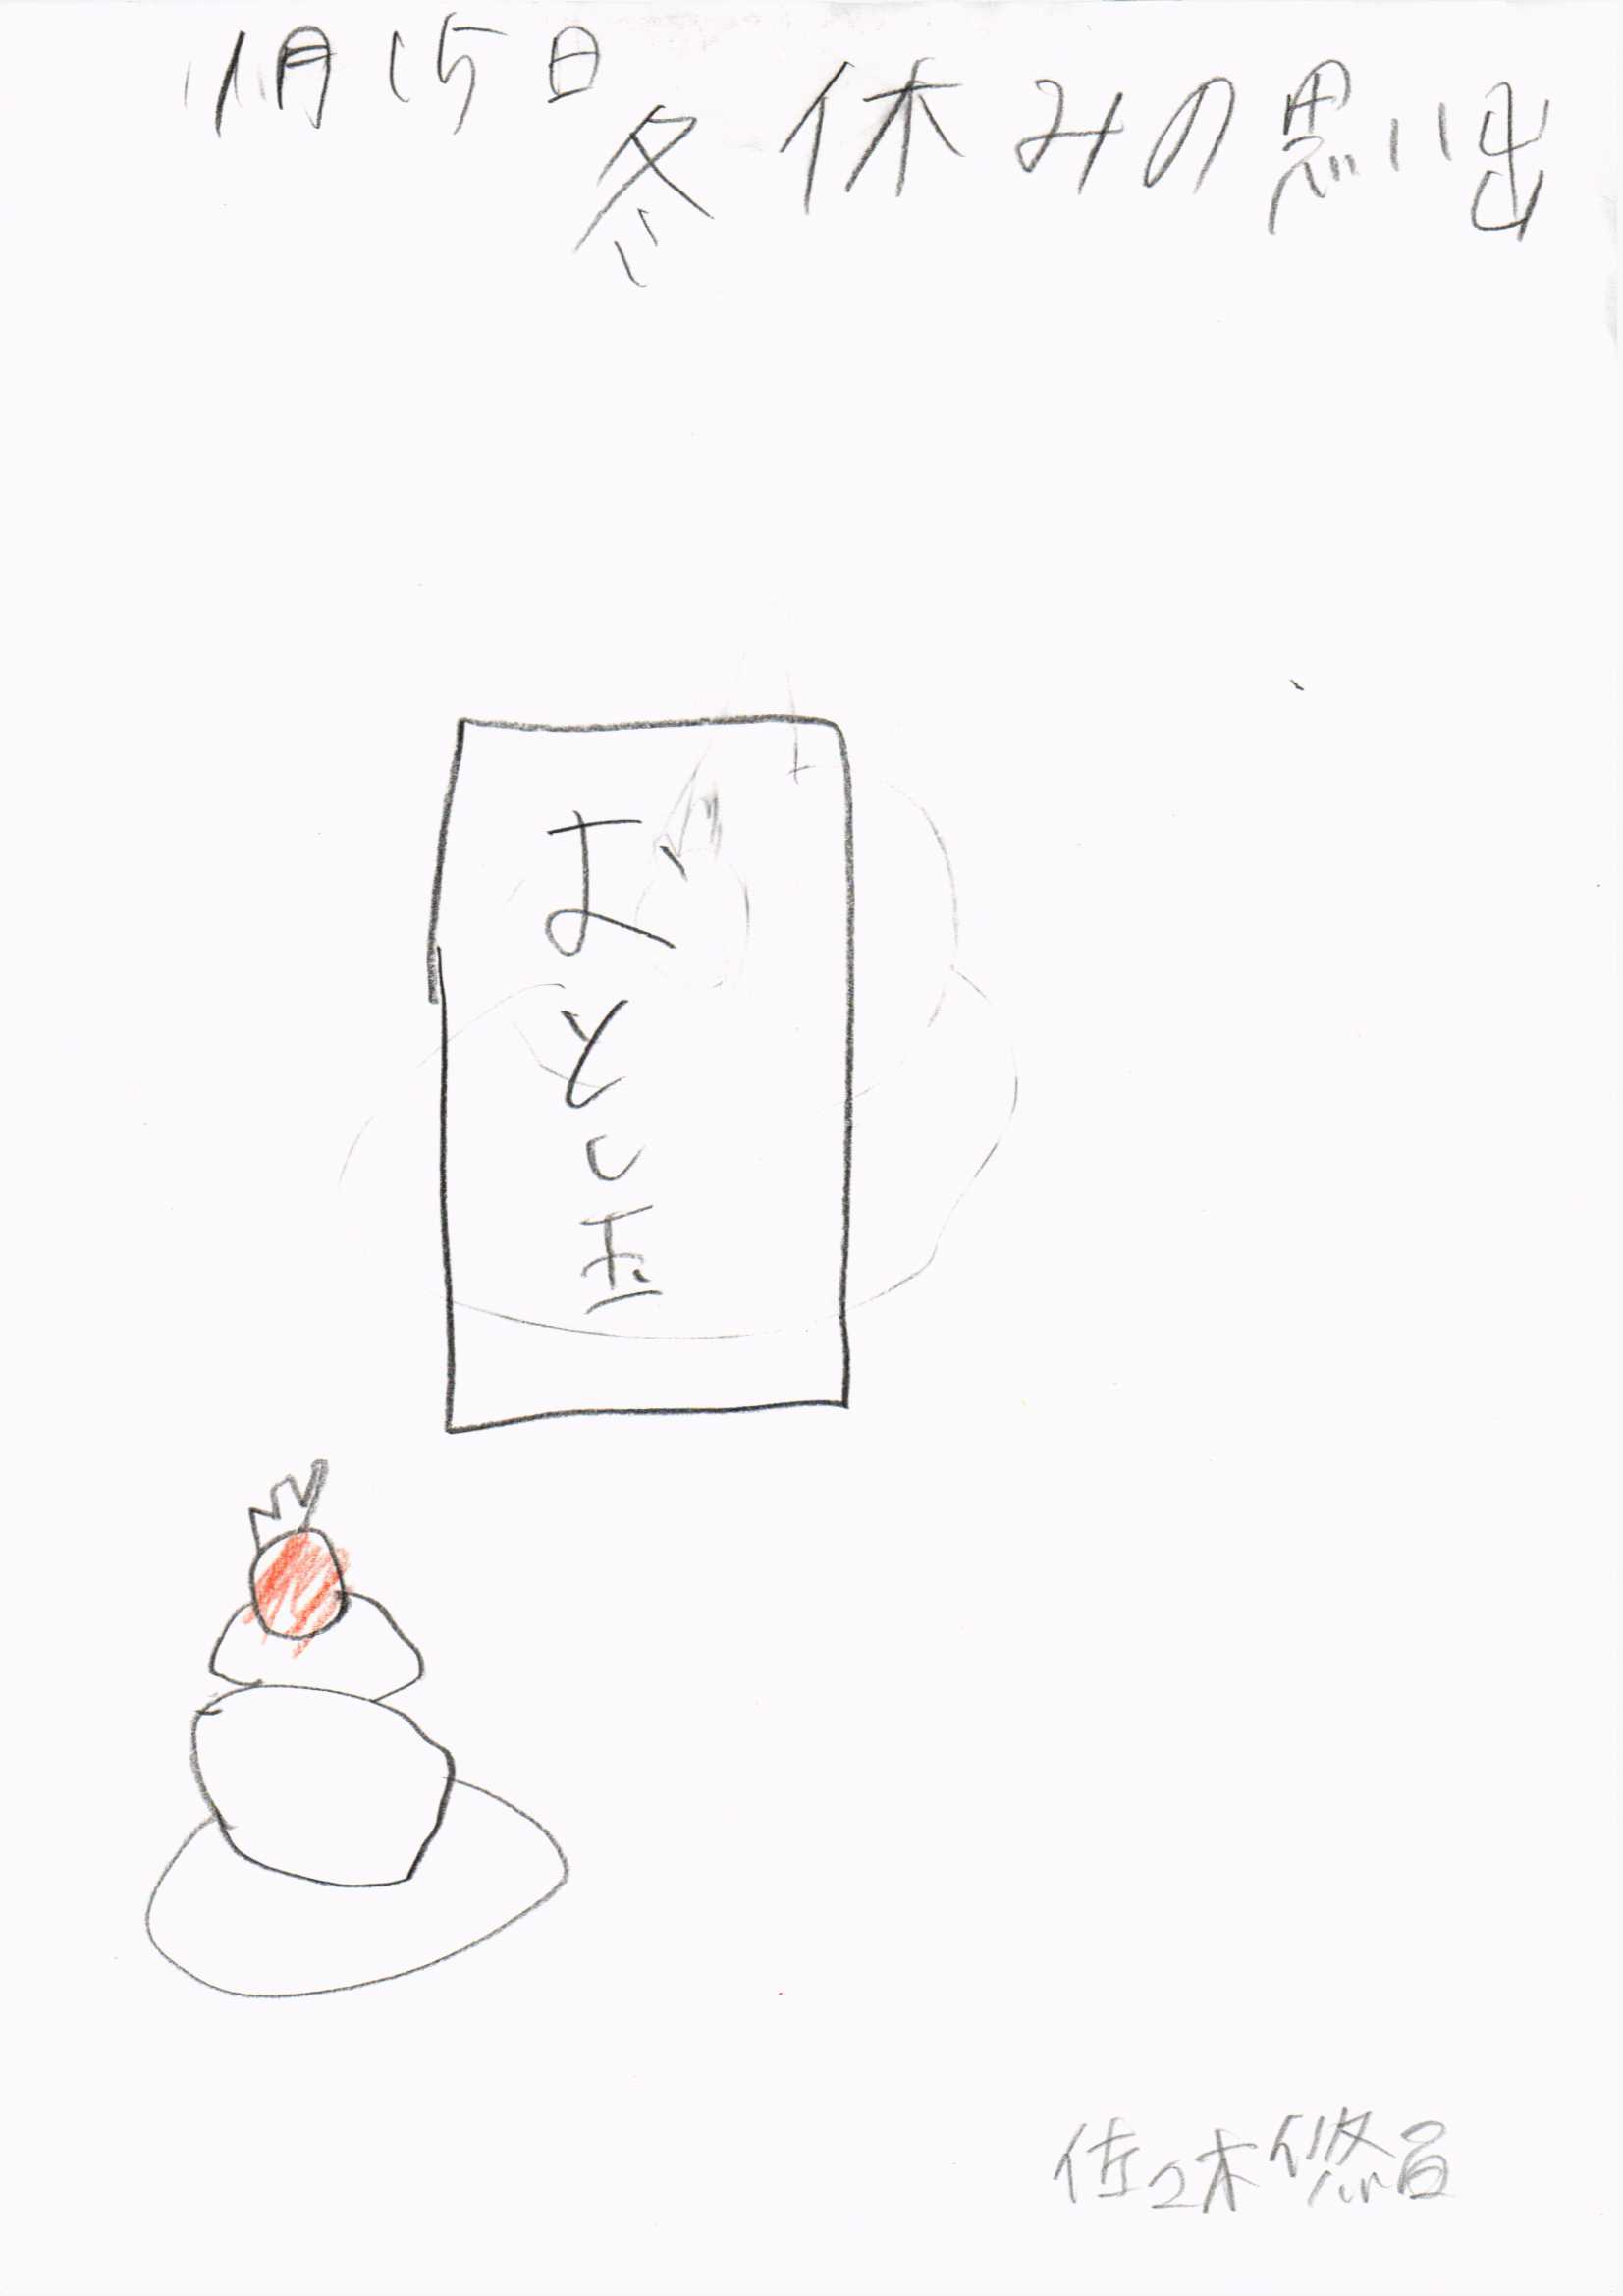 1月15日
冬休みの思い出
おとし玉
佐々木悠